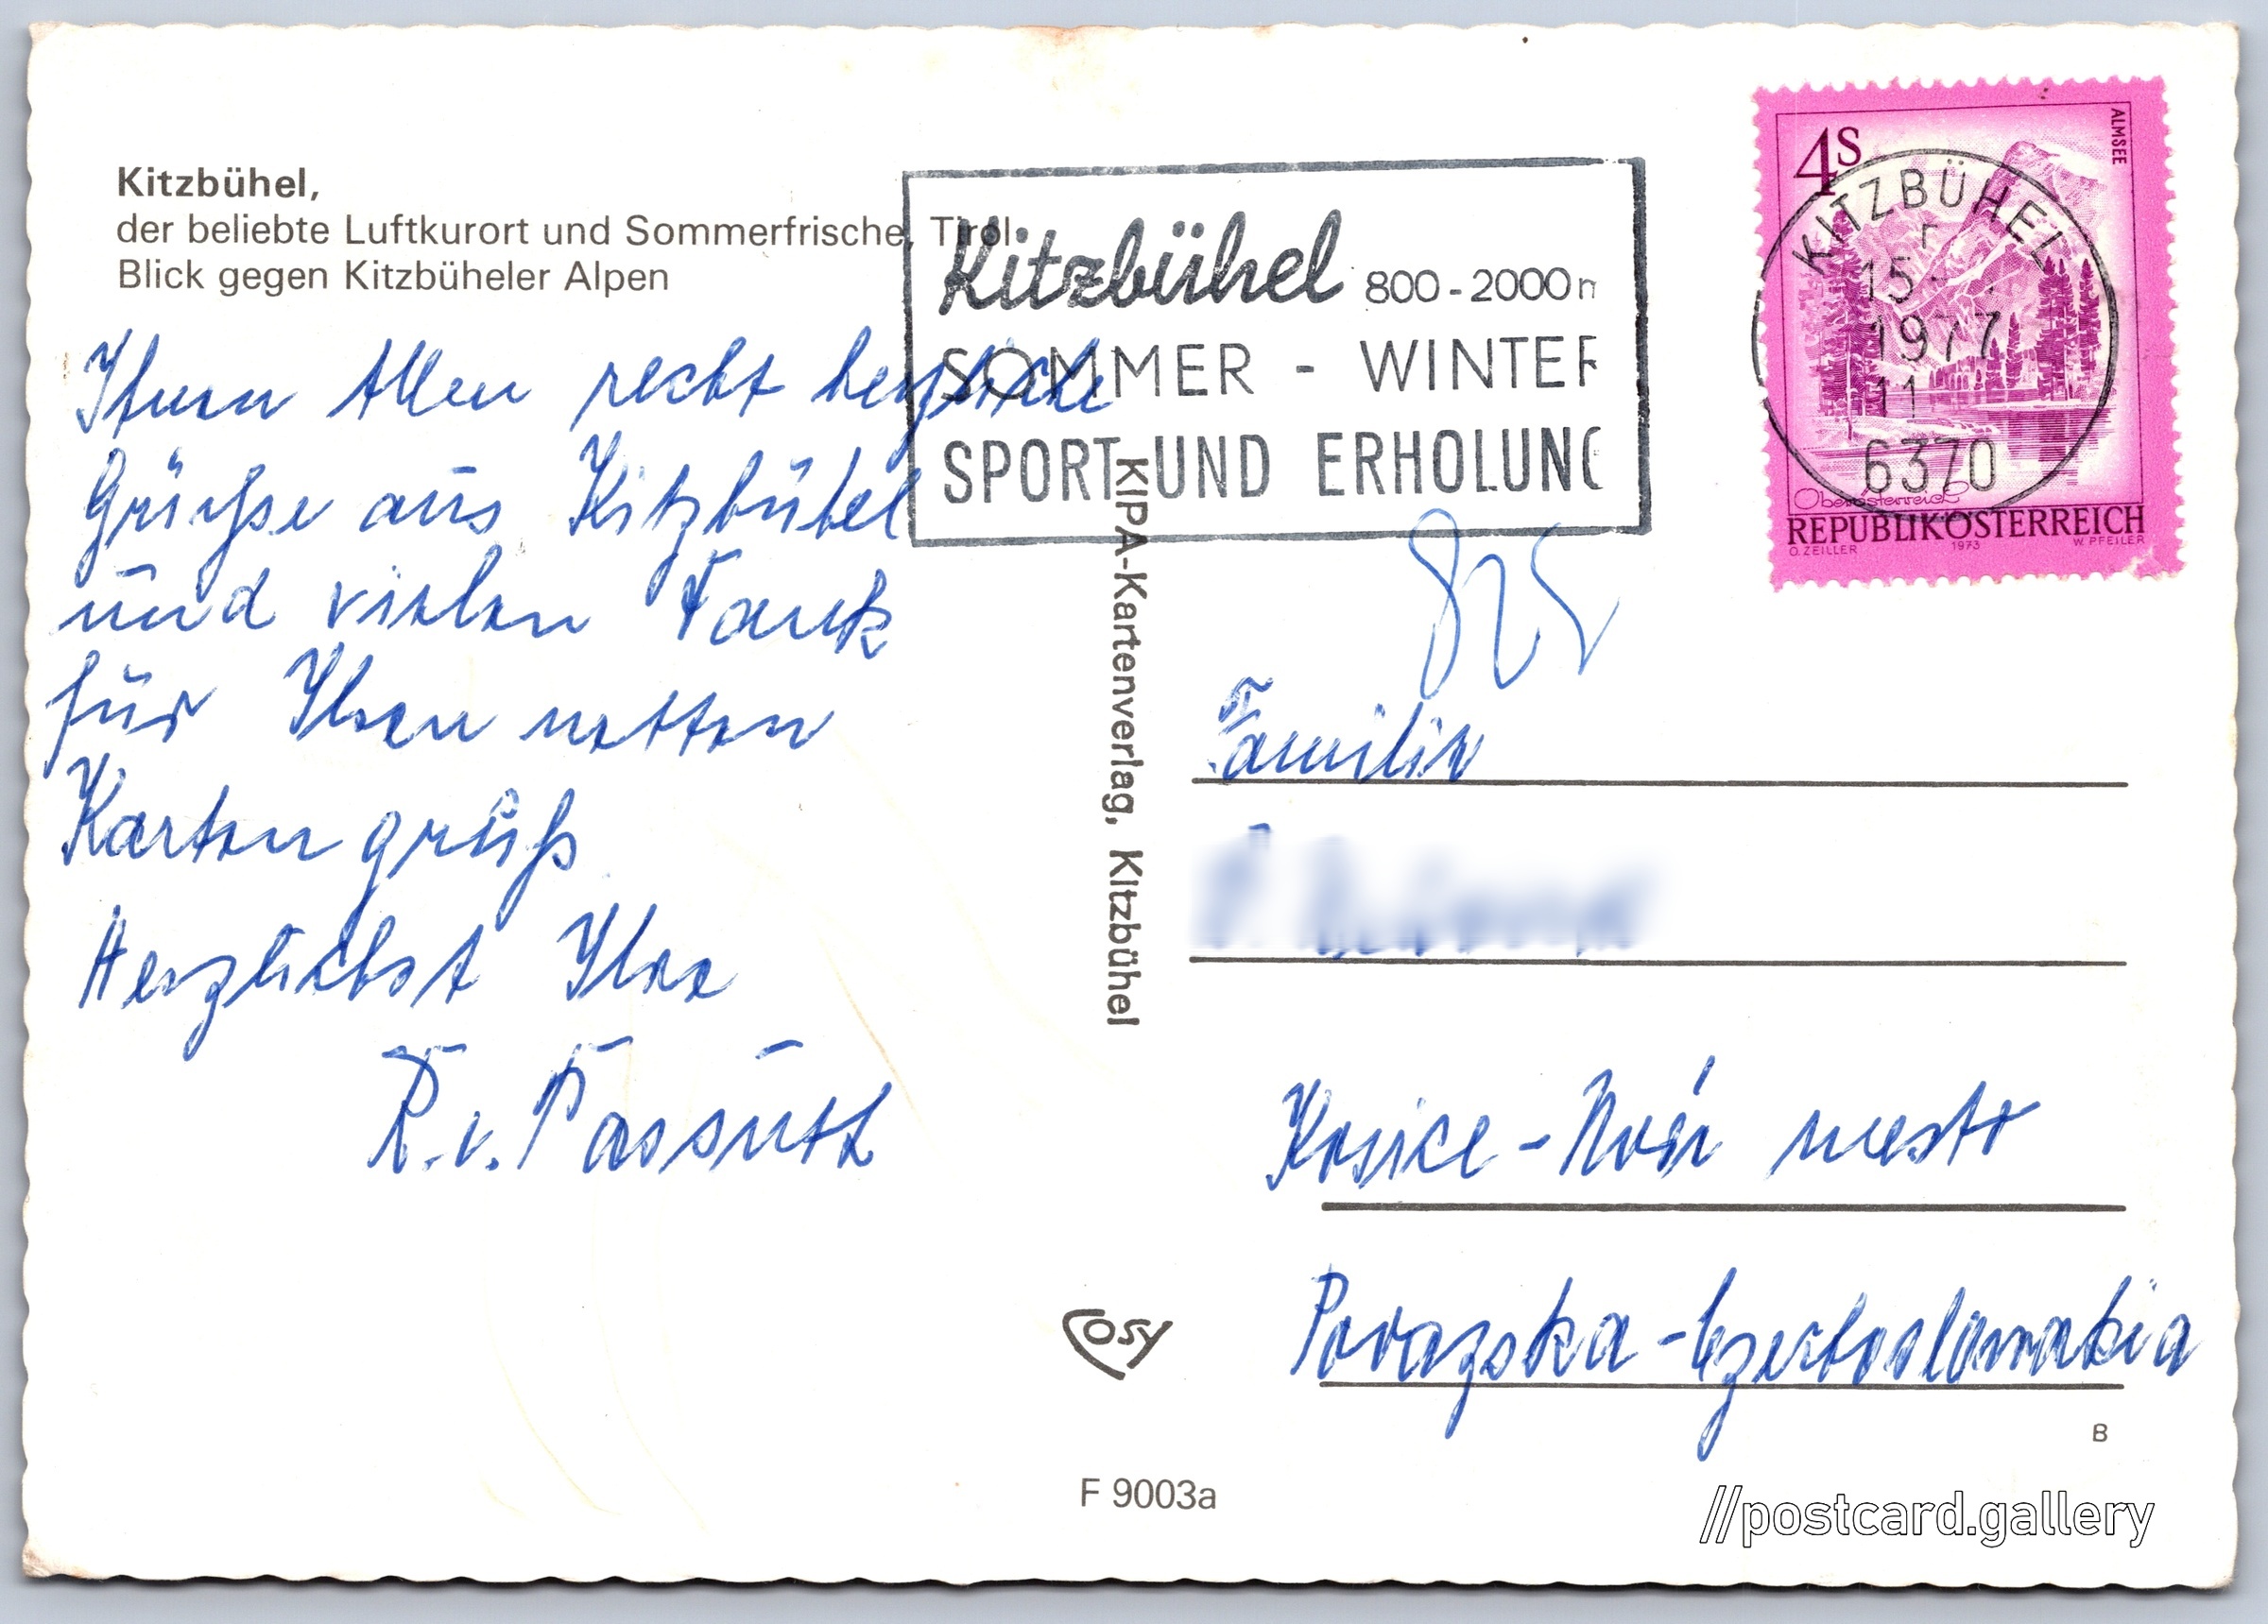 Kitzbühel,
der beliebte Luftkurort und Sommerfrische, Tirol
Blick gegen Kitzbüheler Alpen
Kitzbühel 800-2000m
SOMMER - WINTER
SPORT UND ERHOLUNG
4S
ALMSEE
KITZBÜHEL
15.
1977
11
6370
Oberösterreich
REPUBLIK ÖSTERREICH
O. ZEILLER 1973 W. PFEILER
Ihnen Allen recht herzliche
Grüsse aus Kitzbühel
und vielen Dank
für Ihren netten
Kartengruß
Herzlichst Ihre
KIPA-Kartenverlag, Kitzbühel
825
Familie
Kosice - Nové mesto
Povazska - Czechoslovakia
COSY
B
F 9003a
//postcard.gallery